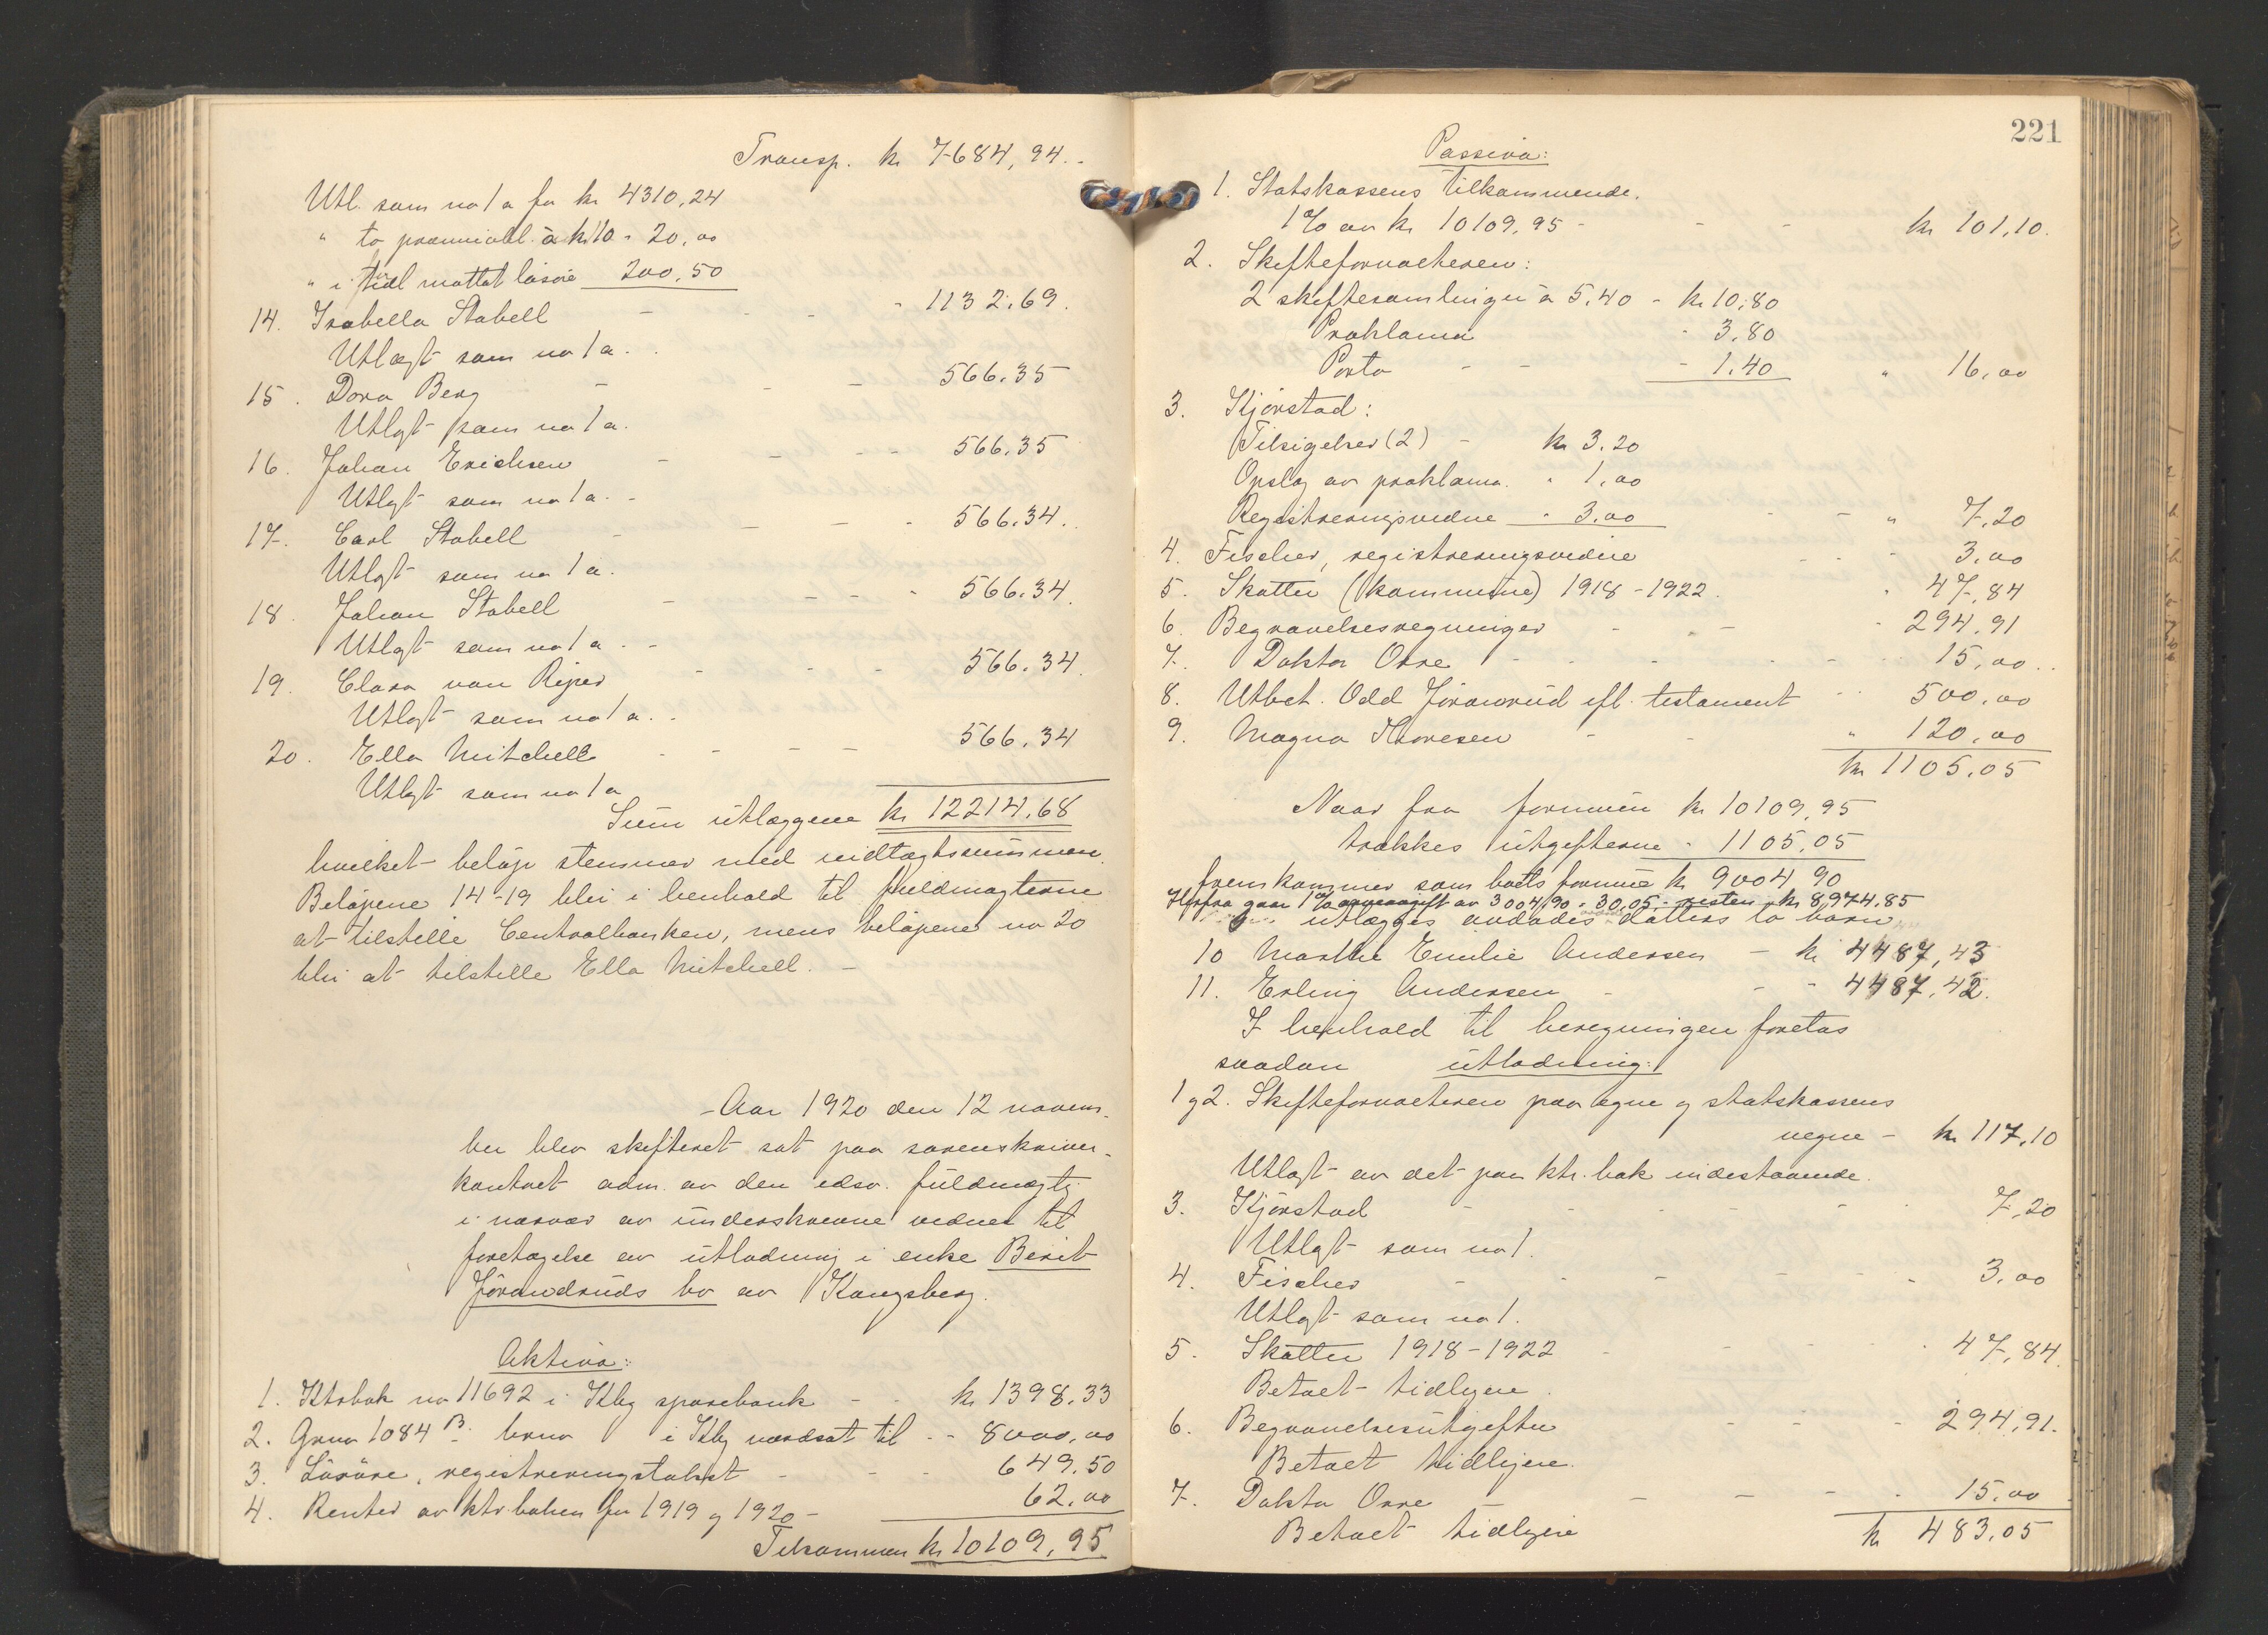 Transp. kr 7684,94.
Utl. som no 1 a for kr 4310,24
" to præmieobl. à kr 10 - 20,00
" i tidl mottat løsøre 200,50
14. Isabella Stabell - - - 1132.69.
Utlagt som no 1 a.
15. Dora Berg - - - 566.35
Utlagt som no 1 a.
16. Johan Erichsen - - - 566.35
Utlagt som no 1 a. -
17. Carl Stabell - - - 566.34.
Utlagt som no 1 a.
18. Johan Stabell - - - 566.34.
Utlagt som no 1 a. -
19. Clara van Riper - - - 566.34.
Utlagt som no 1 a. -
20. Ella Mitchell - - - 566.34
Utlagt som no 1 a
Sum utlæggene kr 12214.68
hvilket beløp stemmer med indtægtssummen.
Beløpene 14-19 blir i henhold til fuldmagterne
at tilstille Centralbanken, mens beløpene no 20
blir at tilstille Ella Mitchell. -
Aar 1920 den 12 novem-
ber blev skifteret sat paa sorenskriver-
kontoret adm. av den edsv. fuldmægtig
i nærvær av underskrevne vidner til
foretagelse av utlodning i enke Berit
Jørandruds bo av Kongsberg.
Aktiva:
1. Ktrbok no 11692 i Kbg sparebank - - kr 1398.33
2. Grno 1084 B. brno i Kbg værdsat til - - 8000,00
3. Løsøre, registreringstakst - - - 649.50
4. Renter av ktr boken for 1919 og 1920 - 62.00
Tilsammen kr 10109,95
221
Passiva:
1. Statskassens tilkommende.
1% av kr 10109,95 - - - kr 101,10.
2. Skifteforvalteren:
2 skiftesamlinger à 5.40 - kr 10.80
Proklama - 3.80
Porto - - - 1.40 " 16,00
3. Kjørstad:
Tilsigelser (2) - kr 3.20
Opslag av proklama. " 1,00
Registreringsvidne " 3.00 - - " 7.20
4. Fischer, registreringsvidne - - - 3.00
5. Skatter (kommune) 1918-1922. " 47,84
6. Begravelsesregninger - - - 294,91
7. Doktor Orre - - - 15,00.
8. Utbet. Odd Jørandrud ifl. testament - - 500,00
9. Magna Thoresen - - " 120,00
kr 1105.05
Naar fra formuen kr 10109,95
trækkes utgifterne - 1105.05
fremkommer som boets formue kr 9004 90
Herfra gaar 1% arveavgift av 3004,90 = 30,05 - resten kr 8974.85
utlægges avdødes datters to børn.
10 Marthe Emilie Andersen - kr 4487,43
11. Erling Andersen - - - 4487,42.
I henhold til beregningen foretas
saadan utlodning:
1 og 2. Skifteforvalteren paa egne og statskassens
vegne - kr 117,10
Utlagt av det paa ktr. bok indestaaende.
3. Kjørstad - - - 7,20
Utlagt som no 1.
4. Fischer - - - 3,00
Utlagt som no 1.
5. Skatter 1918-1922 - - - 47,84.
Betalt tidligere.
6. Begravelsesutgifter - - - 294,91.
Betalt tidligere.
7. Doktor Orre - - - 15.00
Betalt tidligere kr 483,05